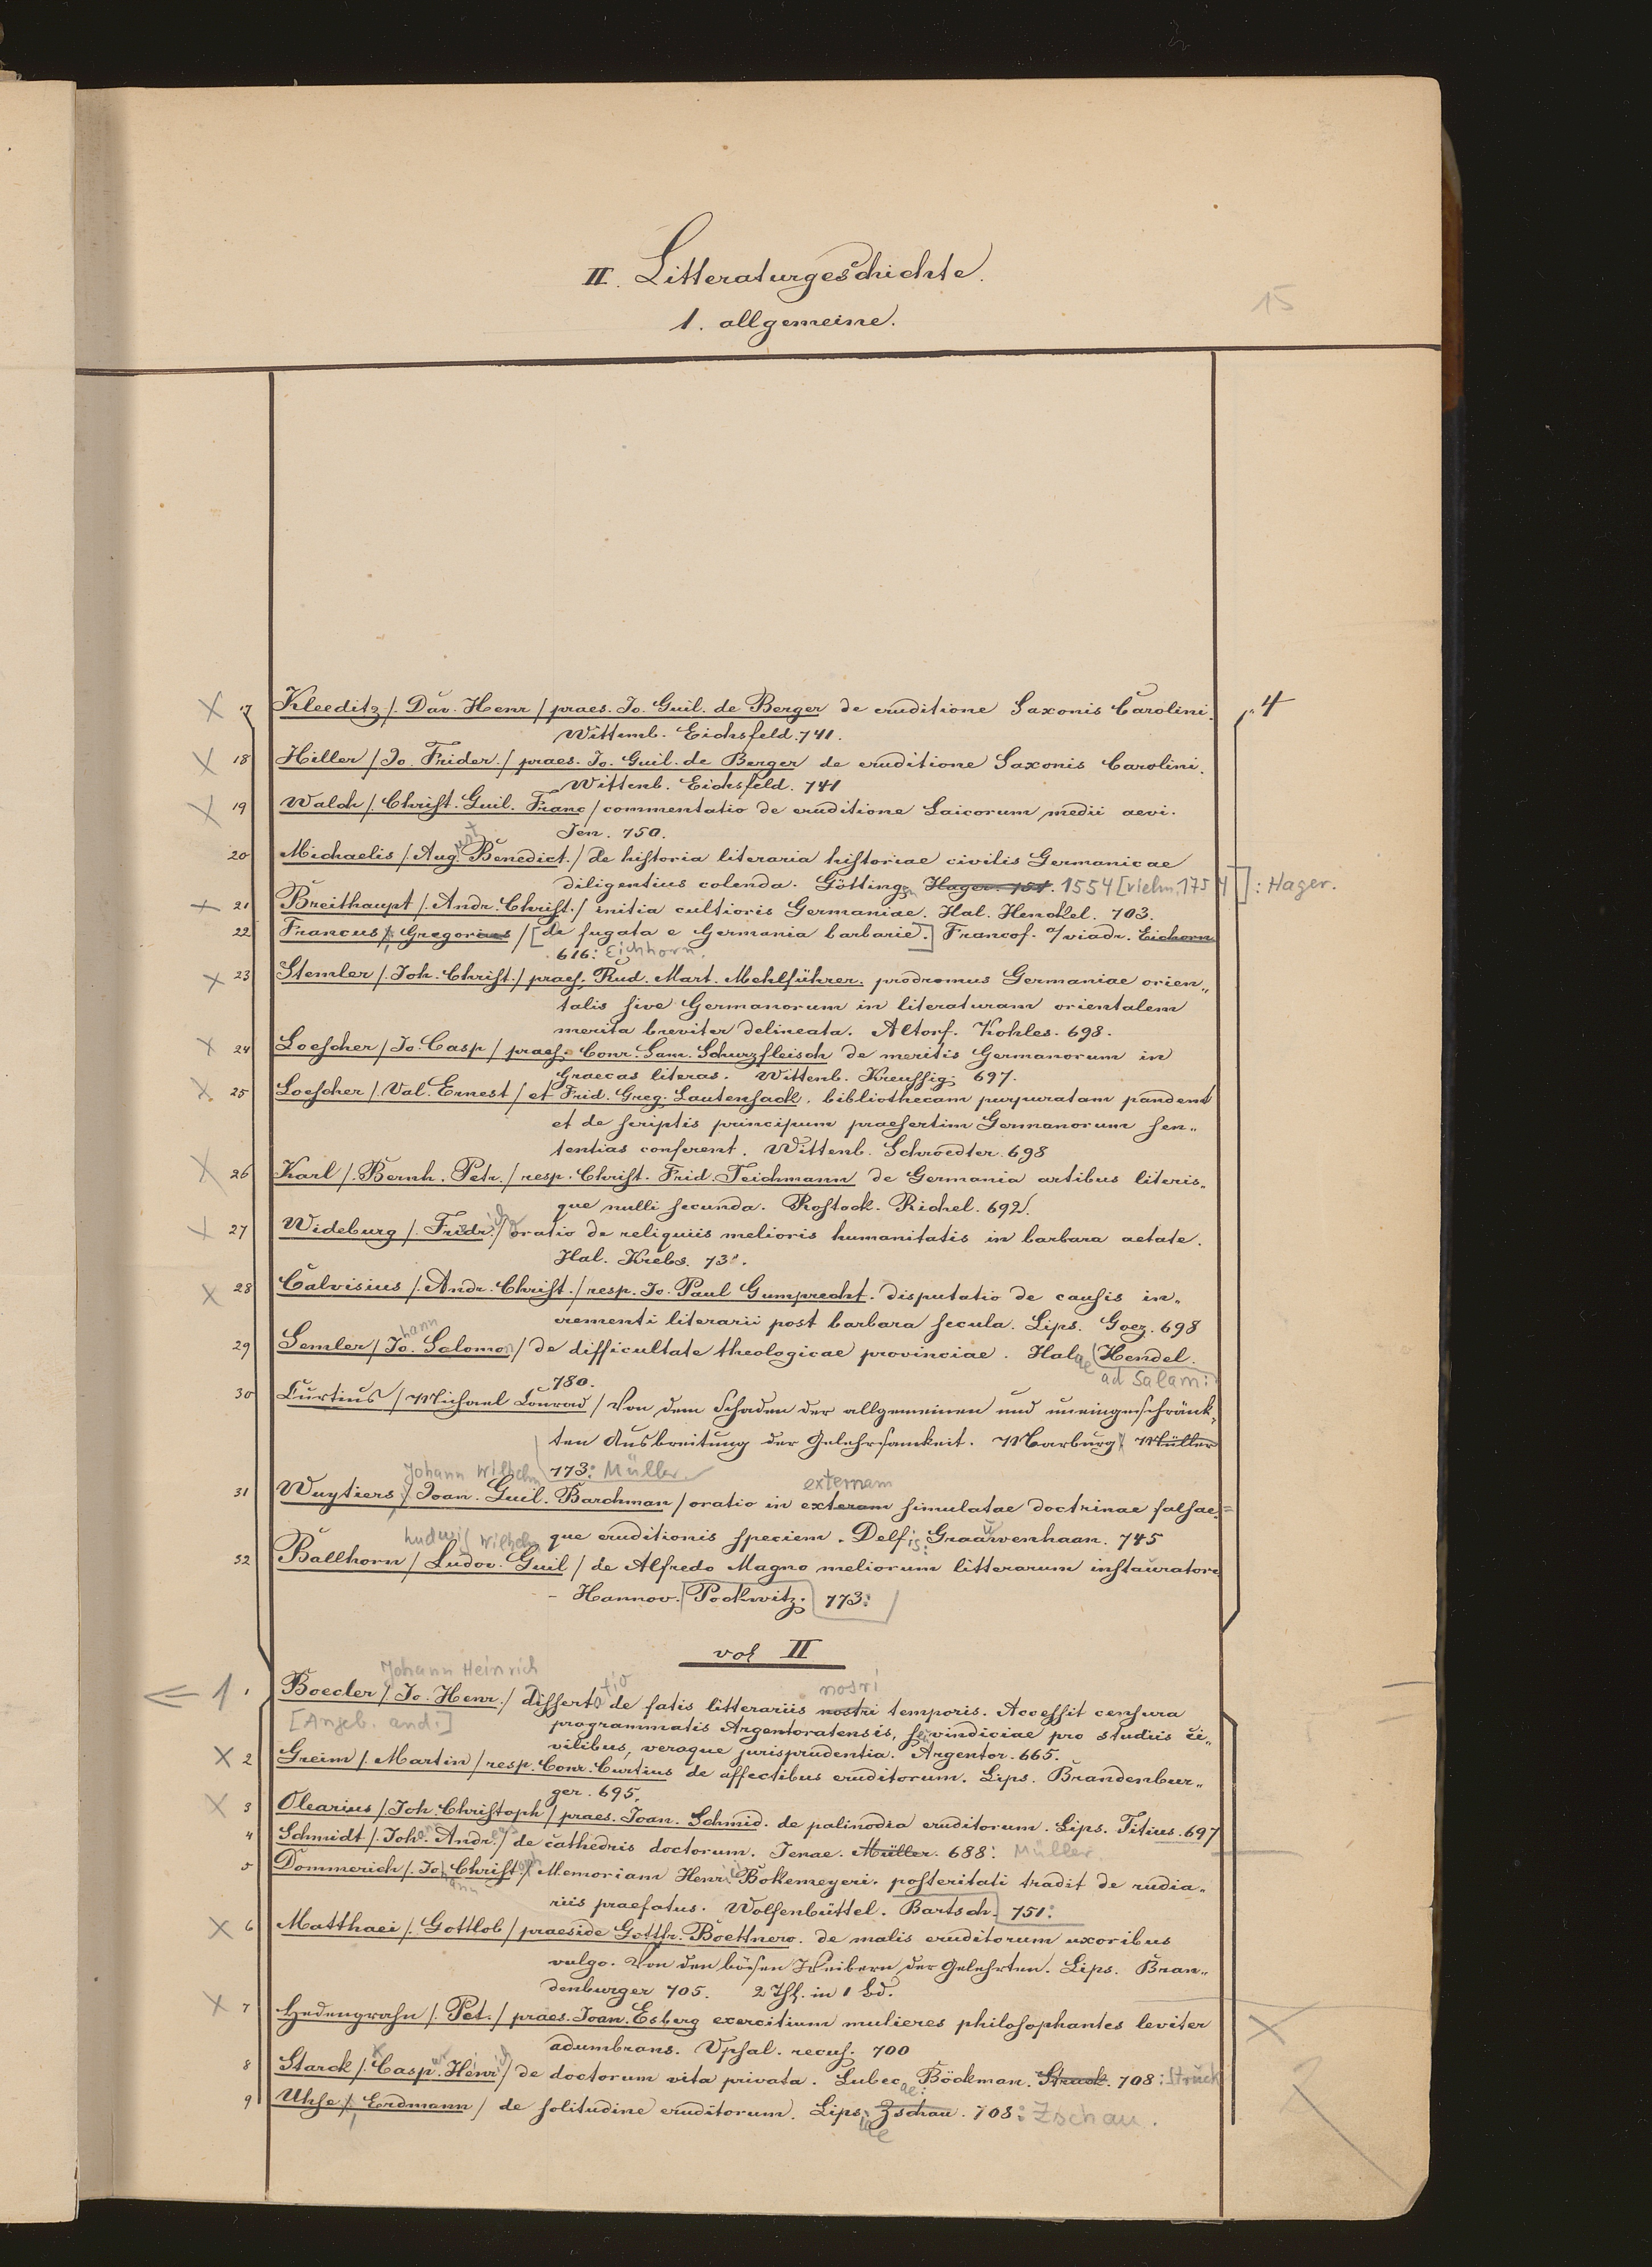 II. Litteraturgeschichte.
15
1. allgemeine.
X 17 Kleeditz /. Dav. Henr / praes. Jo. Guil. de Berger de eruditione Saxonis Carolini. 4
Wittemb. Eichsfeld. 741.
X 18 Hiller / Jo. Frider. / praes. Jo. Guil. de Berger de eruditione Saxonis Carolini.
Wittenb. Eichsfeld. 741
X 19 Walch /. Christ. Guil. Franc / commentatio de eruditione Laicorum medii aevi.
Jen. 750.
20 Michaelis /. Aug.ust Benedict. / de historia literaria historiae civilis Germanicae
diligentius colenda. Götting. Hager. 751. 1554 [vielm. 1754] : Hager.
X 21 Breithaupt /. Andr. Christ. / initia cultioris Germaniae. Hal. Henckel. 703.
22 Francus /. Gregorius / [de fugata e Germania barbarie.] Francof. a/viadr. Eichorn
616: Eichhorn.
X 23 Stemler /. Joh. Christ. / praes. Rud. Mart. Mehlführer. prodromus Germaniae orien„
talis sive Germanorum in literaturam orientalem
merita breviter delineata. Altorf. Kohles. 698.
X 24 Loescher / Jo. Casp / praes. Conr. Sam. Schurzfleisch de meritis Germanorum in
Graecas literas. Wittenb. Kreussig. 697.
X 25 Loescher /. Val. Ernest / et Frid. Greg. Lautensack. bibliothecam purpuratam pandent
et de scriptis principum praesertim Germanorum sen„
tentias conferent. Wittenb. Schroedter. 698
X 26 Karl /. Bernh. Petr. / resp. Christ. Frid. Teichmann de Germania artibus literis„
que nulli secunda. Rostock. Richel. 692.
X 27 Wideburg /. Fridr.ich / oratio de reliquiis melioris humanitatis in barbara aetate.
Hal. Krebs. 73.
X 28 Calvisius /. Andr. Christ. / resp. Jo. Paul Gumprecht. disputatio de causis in„
crementi literarii post barbara secula. Lips. Goez. 698
29 Semler / Jo.hann Salomon / de difficultate theologicae provinciae. Halae (Hendel.
780. ad Salam:
30 Curtius / Michael Conrad / Von dem Schaden der allgemeinen und uneingeschränk„
ten Ausbreitung der Gelehrsamkeit. Marburg Müller
773: Müller.
Johann Wilhelm externam
31 Wuytiers / Joan. Guil. Barchman / oratio in exteram simulatae doctrinae falsae„
que eruditionis speciem. Delfis: Graauwenhaan. 745
Ludwig Wilhelm
32 Ballhorn / Ludov. Guil / de Alfredo Magno meliorum litterarum instauratore
– Hannov. Pockwitz. 773:
vol II
Johann Heinrich nosri
← 1. Boecler / Jo. Henr. / dissertatio de fatis litterariis nostri temporis. Accessit censura
[Angeb. and.] programmatis Argentoratensis, seu vindiciae pro studiis ci„
vilibus, veraque jurisprudentia. Argentor. 665.
X 2 Greim /. Martin / resp. Conr. Curtius de affectibus eruditorum. Lips. Brandenbur„
ger. 695.
X 3 Olearius / Joh. Christoph / praes. Joan. Schmid. de palinodia eruditorum. Lips. Titius. 697
4 Schmidt /. Johann Andreas / de cathedris doctorum. Jenae. Müller. 688: Müller.
5 Dommerich /. Johann Christoph / Memoriam Henrici Bokemeyeri. posteritati tradit de rudia„
riis praefatus. Wolfenbüttel. Bartsch. 751:
X 6 Matthaei /. Gottlob / praeside Gotth. Boettnero. de malis eruditorum uxoribus
vulgo. Von den bösen Weibern der Gelehrten. Lips. Bran„
denburger 705. 2 Thl. in 1 Bd.
X 7 Hedengrahn /. Pet. / praes. Joan. Esberg exercitium mulieres philosophantes leviter X
adumbrans. Upsal. recus. 700
8 Starck /. Caspar Henrich / de doctorum vita privata. Lubecae: Böckman. Struck. 708: Struck
9 Uhse /. Erdmann / de solitudine eruditorum. Lipsiae Zschau. 708: Zschau.